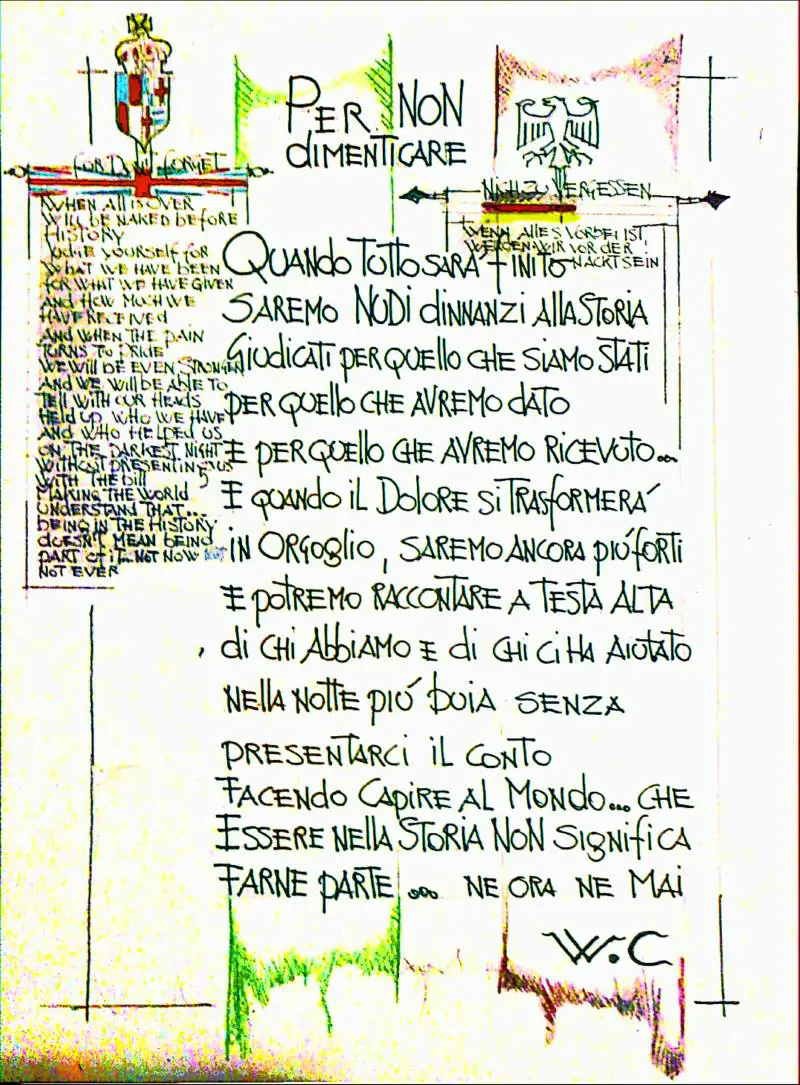 PER NON
DIMENTICARE
FOR DON'T FORGET
WHEN All IS OVER
Will BE NAKED BEFORE
HISTORY
JUDGE YOURSELF FOR
WHAT WE HAVE BEEN
FOR WHAT WE HAVE GIVEN
AND HOW MUCH WE
HAVE RECEIVED
AND WHEN THE PAIN
TURNS TO PRIDE
WE Will BE EVEN STRONGER
AND WE Will BE ABLE TO
TELL WITH OUR HEADS
HELD UP WHO WE HAVE
AND WHO HELPED US
ON THE DARKEST NIGHT
WITHOUT PRESENTING US
WITH THE Bill
MAKING THE WORLD
UNDERSTAND THAT...
BEING IN THE HISTORY
DOESN'T MEAN BEING
PART OF IT...NOT NOW
NOT EVER
NICH ZU VERGESSEN
WENN ALLES VORBEI IST,
WERDEN WIR VOR DER
NACKT SEIN
QUANDO TUTTO SARA' FINITO
SAREMO NUDI DINNANZI ALLA STORIA
GIUDICATI PER QUELLO CHE SIAMO STATI
PER QUELLO CHE AVREMO DATO
E PER QUELLO CHE AVREMO RICEVUTO...
E QUANDO IL DOLORE SI TRASFORMERA'
IN ORGOGLIO, SAREMO ANCORA PIÚ FORTI
E POTREMO RACCONTARE A TESTA ALTA
DI CHI ABBIAMO E DI CHI CI HA AIUTATO
NELLA NOTTE PIÚ BUIA SENZA
PRESENTARCI IL CONTO
FACENDO CAPIRE AL MONDO... CHE
ESSERE NELLA STORIA NON SIGNIFICA
FARNE PARTE ... NE ORA NE MAI
W.C